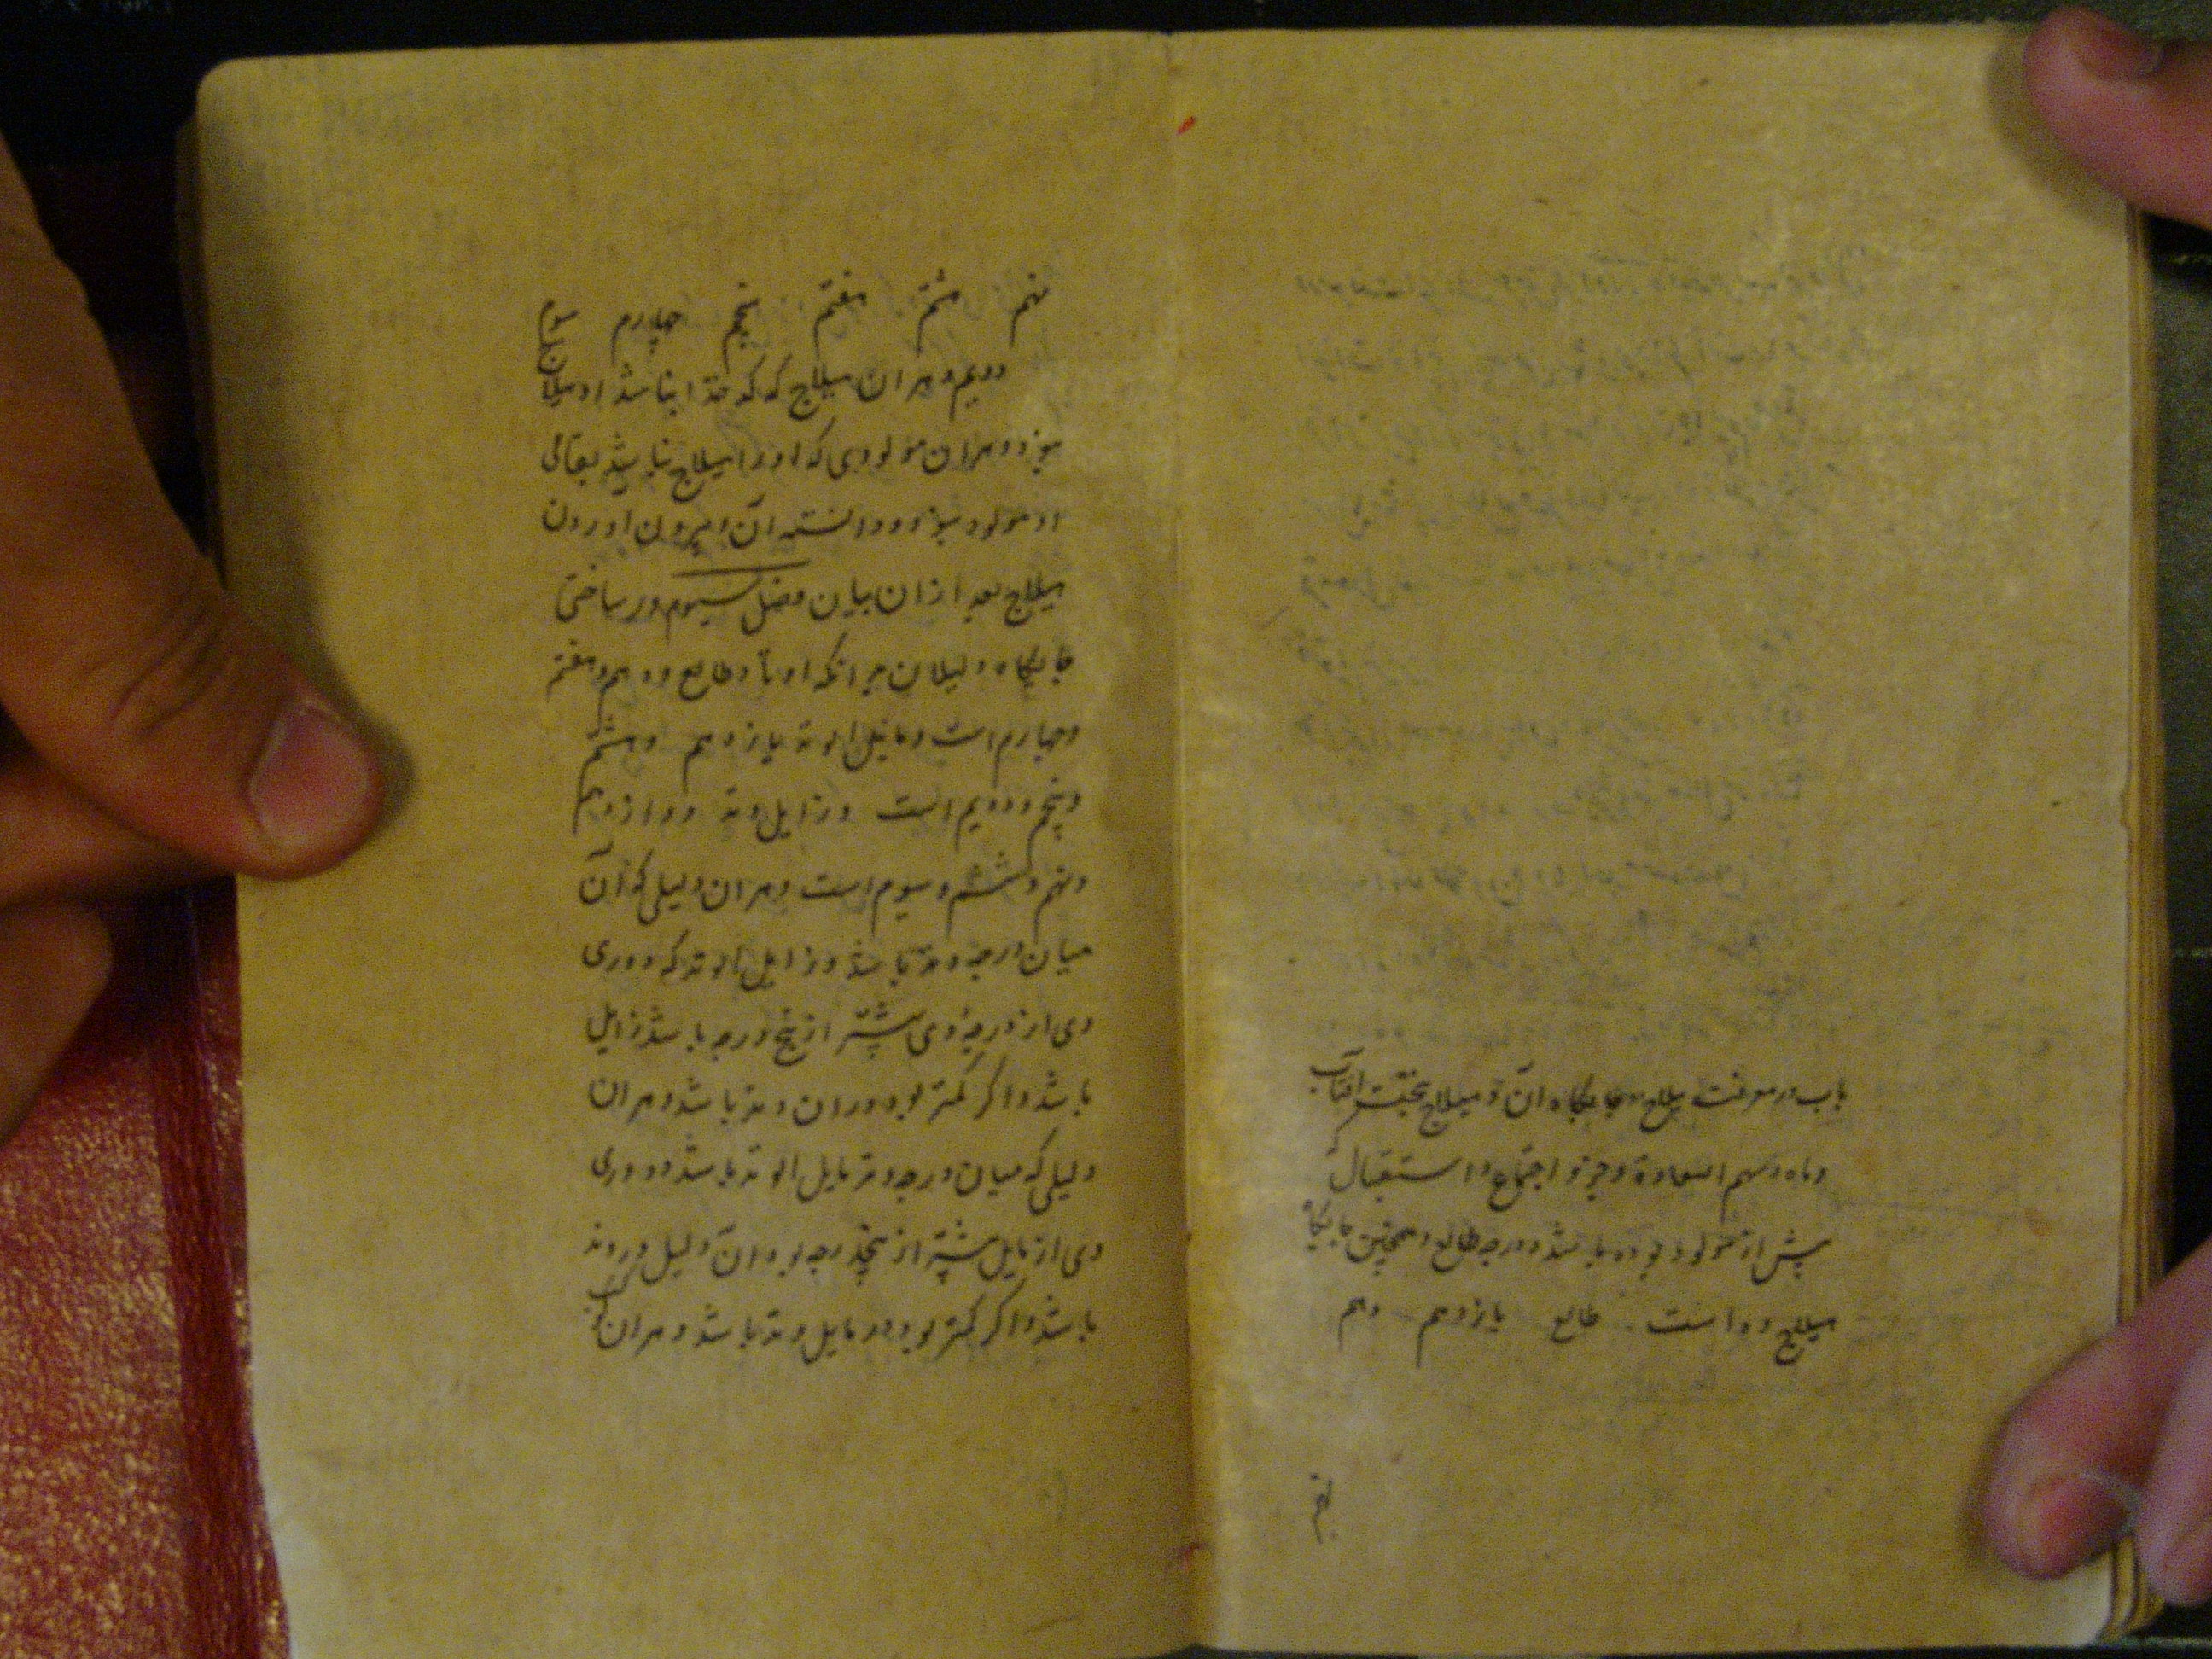 باب در معرفت هیلاج و جایگاه آن و هیلاج نخست آفتاب
و ماه و سهم السعادة و جزو اجتماع و استقبال
پیش از مولود بوده باشد و درجه طالع و همچنین جایگاه
هیلاج و دو است طالع یازدهم دهم
نهم هشتم هفتم پنجم چهارم سوم
دویم و هر آن هیلاج که کدخدا نباشد او هیلاج
نبود و هر آن مولودی که او را هیلاج نباشد بقای
او مولود نبود و دانسته آن بیرون آوردن
هیلاج بعد از آن بیان فصل سیوم در ساختن
جایگاه دلیلان بدانکه اوتاد طالع و دهم و هفتم
و چهارم است و مایل الوتد یازدهم و هشتم
و پنجم و دویم است و زایل وتد دوازدهم
و نهم و ششم و سیوم است و هر آن دلیلی که آن
میان درجه وتد باشد و زایل الوتد که دوری
وی از درجه وی بیشتر از پنج درجه باشد زایل
باشد و اگر کمتر بود در آن وتد باشد و هر آن
دلیلی که میان درجه وتد مایل الوتد باشد و دوری
وی از مایل بیشتر از پنجدرجه بود آن دلیل در وتد
باشد و اگر کمتر بود در مایل وتد باشد و هر آن